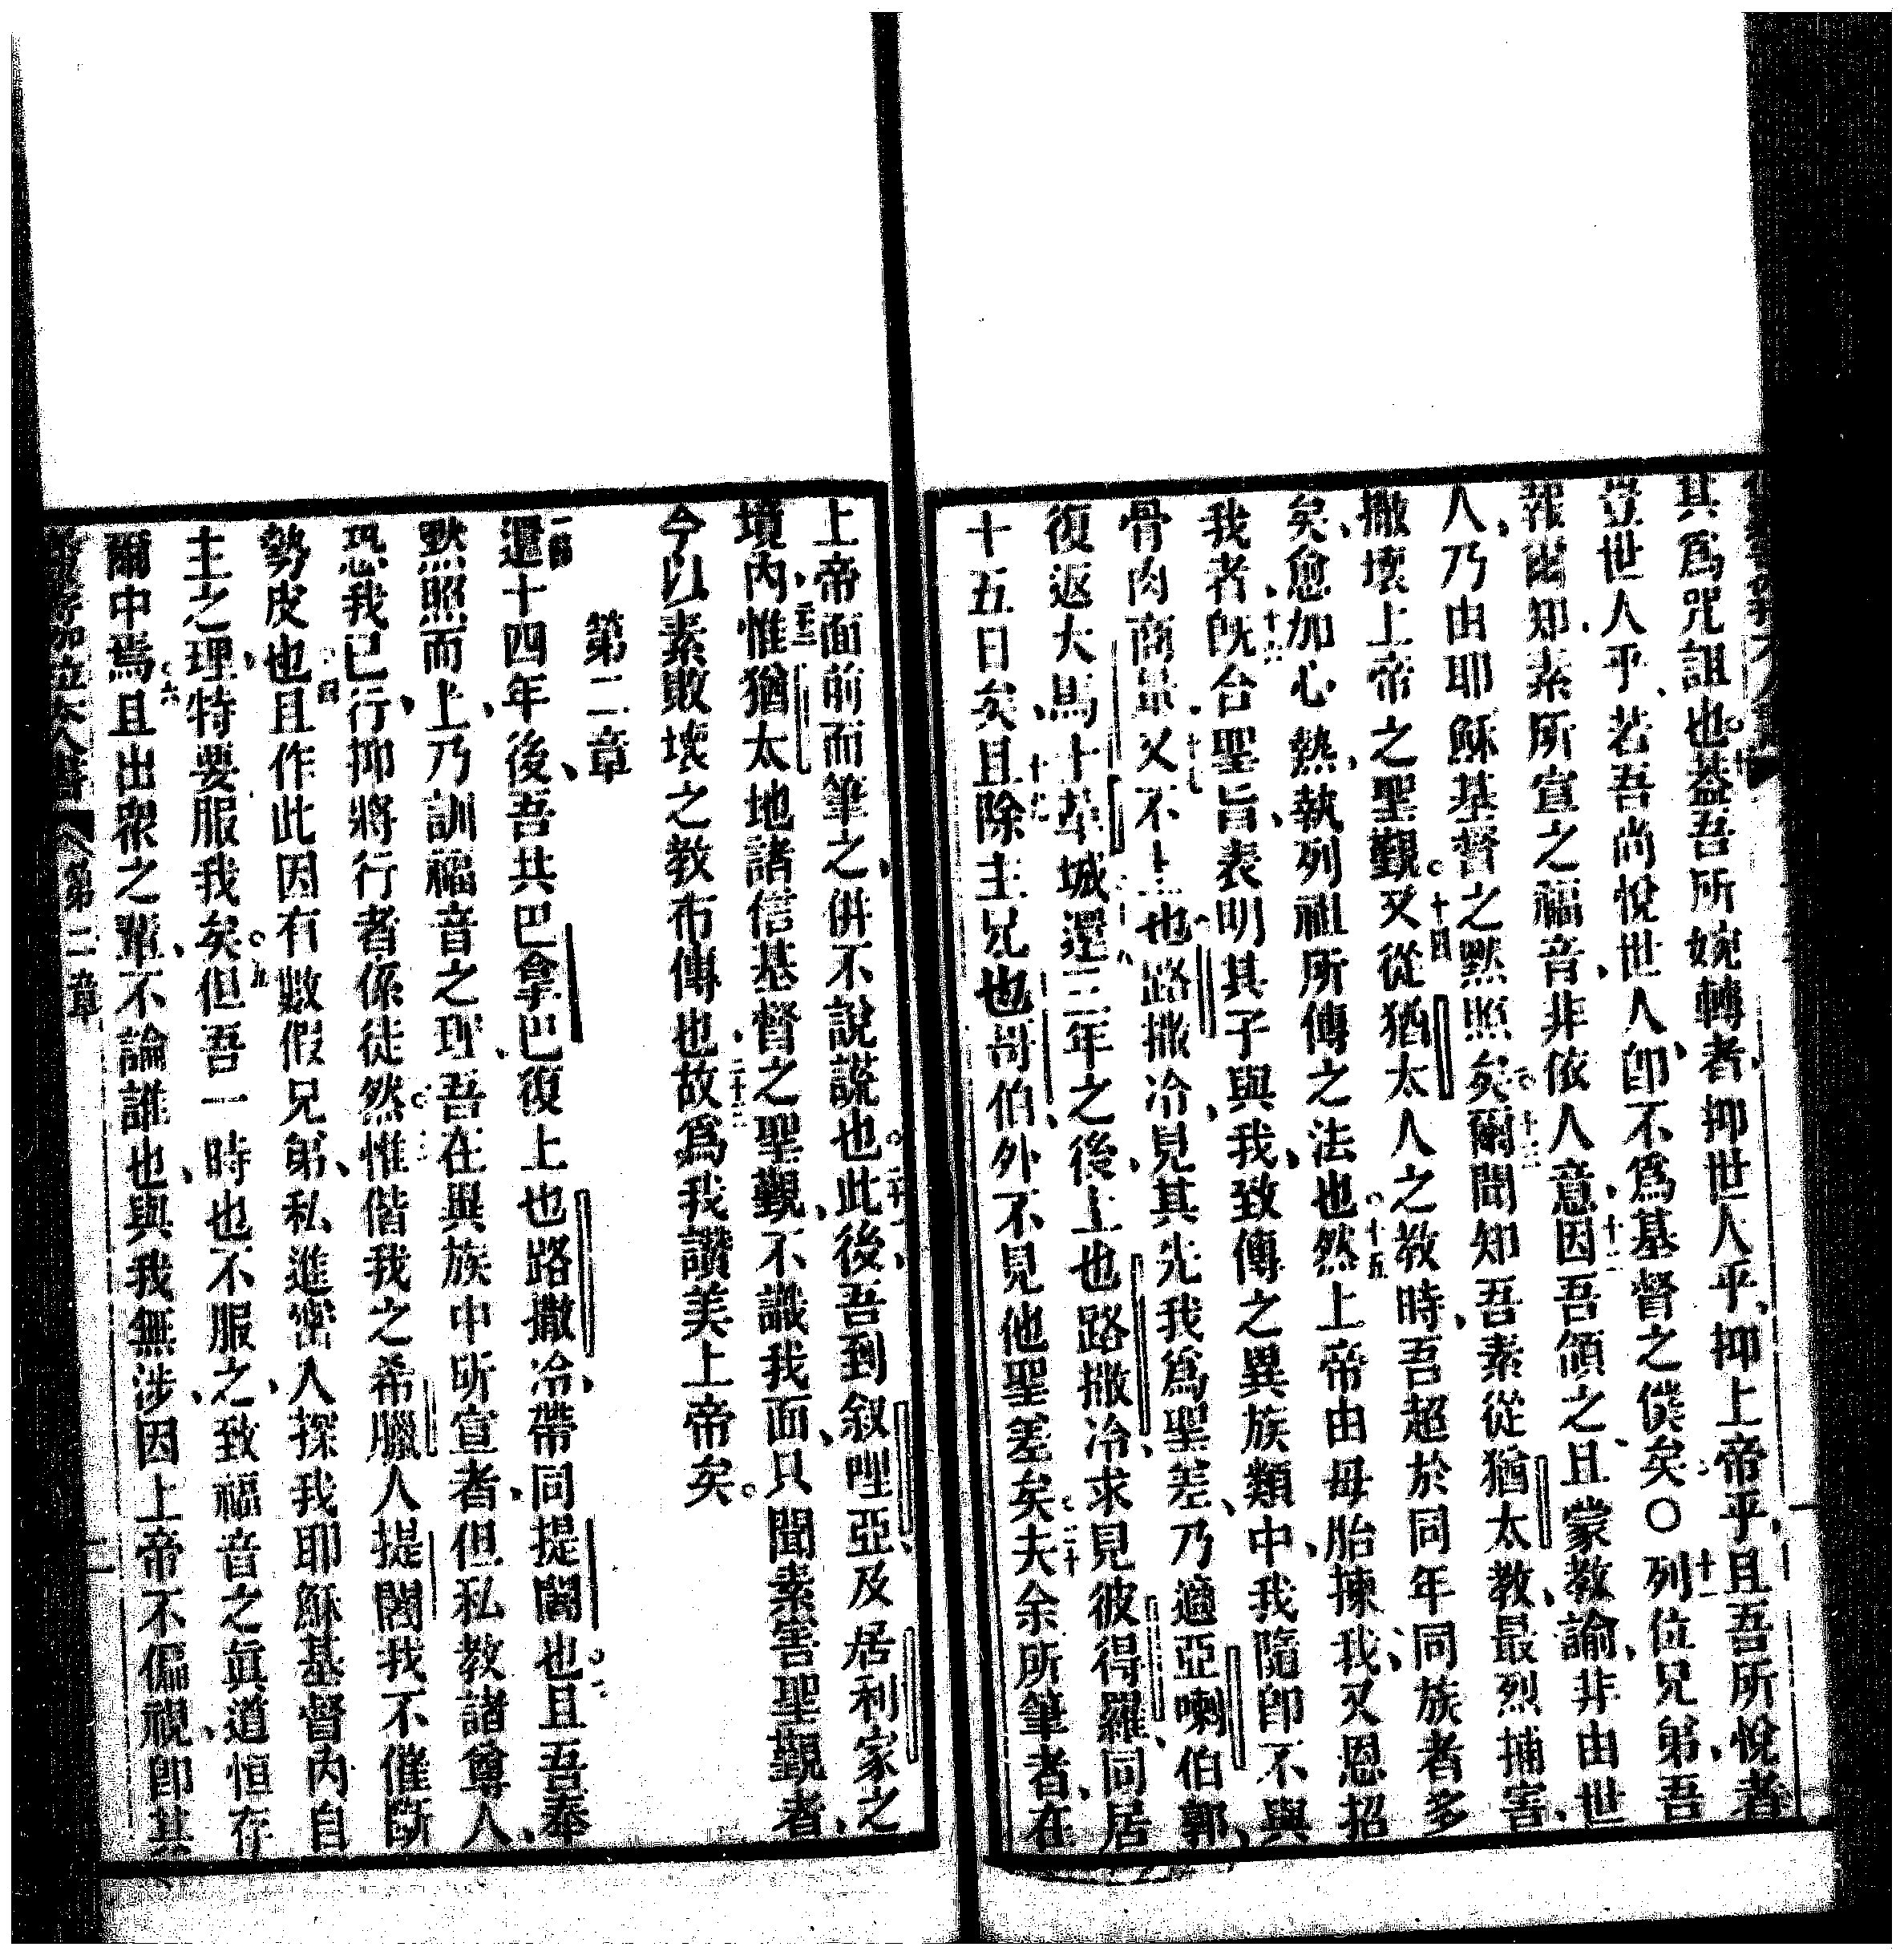 其爲咒詛也。十蓋吾所婉轉者、抑世人乎、抑上帝乎、且吾所悅者
豈世人乎、若吾尚悅世人、卽不爲基督之僕矣。〇十一列位兄弟、吾
報爾知、素所宣之福音、非依人意、十二因吾領之、且蒙教諭、非由世
人、乃由耶穌基督之黙照矣。十三爾聞知吾素從猶太教、最烈捕害、
撒壞上帝之聖覲。十四又從猶太人之教時、吾超於同年同族者多
矣、愈加心熱、執列祖所傳之法也。十五然上帝由母胎揀我、又恩招
我者、十六旣合聖旨、表明其子與我、致傳之異族類中、我隨卽不與
骨肉商量、十七又不上也路撒冷、見其先我爲聖差、乃適亞喇伯郭、
復返大馬士革城。十八還三年之後、上也路撒冷、求見彼得羅、同居
十五日矣、十九且除主兄也哥伯、外不見他聖差矣。二十夫余所筆者、在
上帝面前而筆之、併不說謊也。二十一此後、吾到叙哩亞、及居利家之
境內、二十二惟猶太地諸信基督之聖覲、不識我面、只聞素害聖覲者、
今以素敗壞之教布傳也、二十三故爲我讚美上帝矣。
第二章
一節還十四年後、吾共巴拿巴復上也路撒冷、帶同提闍也。二且吾奉
黙照而上、乃訓福音之理、吾在異族中所宣者、但私教諸尊人、
恐我已行、抑將行者係徒然。三惟偕我之希臘人提闍、我不催斷
勢皮也。四且作此因有數假兄弟、私進密入、探我耶穌基督內自
主之理、特要服我矣。五但吾一時也不服之、致福音之眞道恒存
爾中焉。六且出衆之輩、不論誰也、與我無涉、因上帝不偏視、卽其
第二章
二